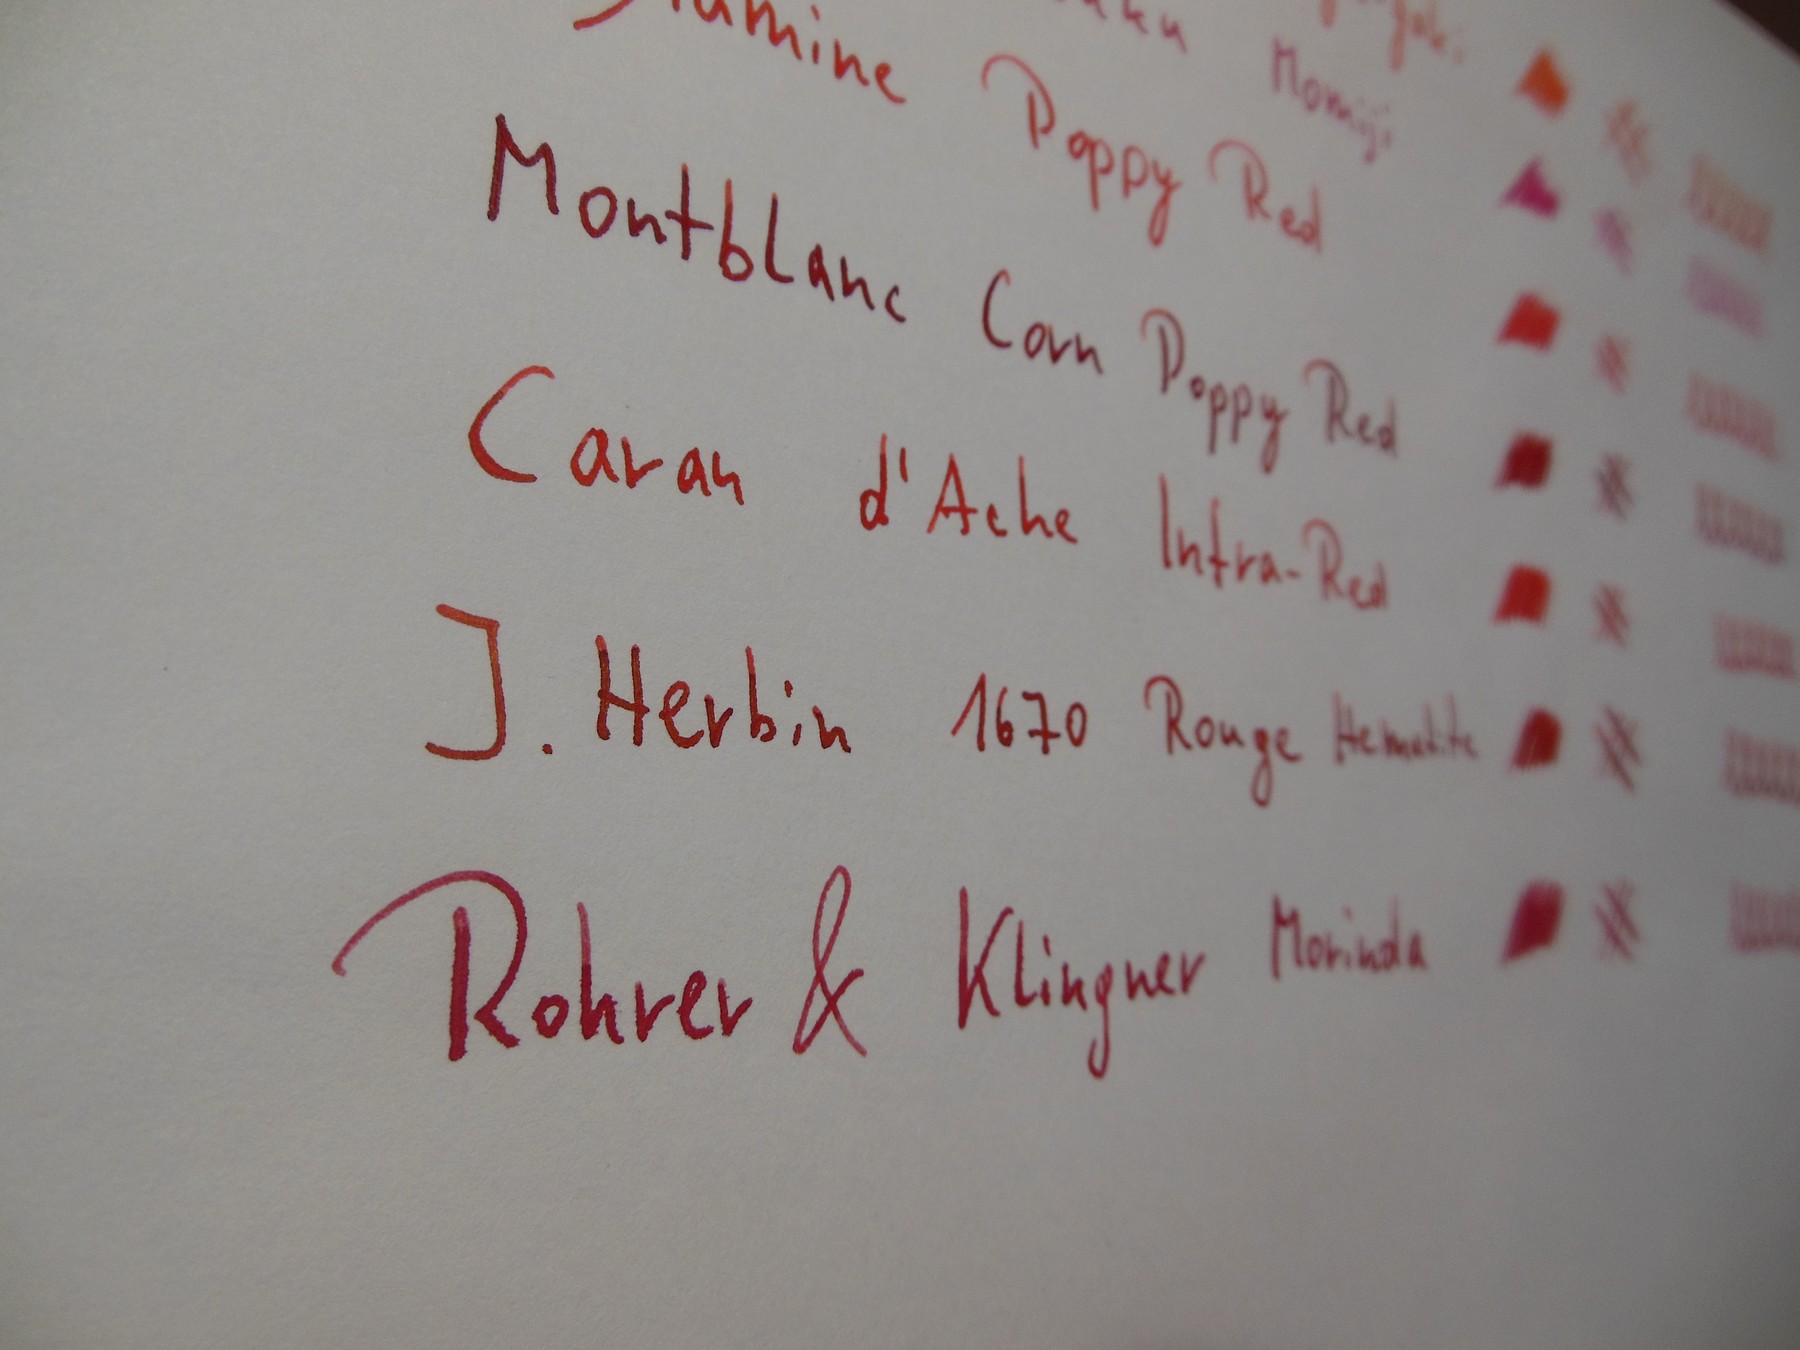 Momiji
Diamine Poppy Red
Montblanc Corn Poppy Red
Caran d'Ache Infra-Red
J. Herbin 1670 Rouge Hematite
Rohrer & Klingner Morinda